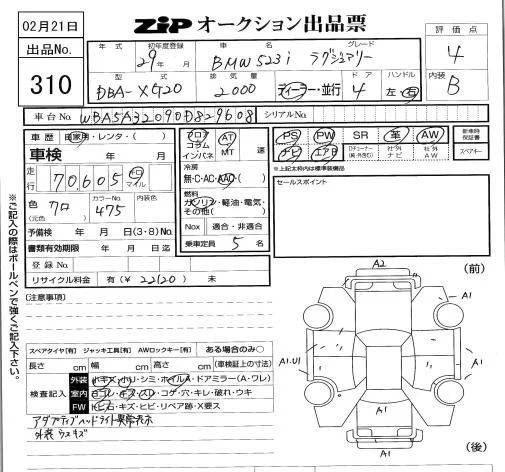 02月21日
ZIP オークション出品票
出品No.
310
年式 初年度登録 車名 グレード
29年 月 BMW 523i ラグジュアリー
型式 排気量 ドア ハンドル
DBA-XG20 2000 ディーラー・並行 4 左・右
評価点
4
内装
B
車台No. WBA5A32090D829608 シリアルNo.
車歴 自家用・レンタ・( )
車検 年 月
走行 70605 キロ マイル
色 クロ カラーNo. 475 内装色
(元色)
予備検 年 月 日(3・8)No.
書類有効期限 年 月 日迄
登録No.
リサイクル料金 有(¥ 22120 ) 未
フロア コラム インパネ AT MT 速
冷房
無・C・AC・AAC・( )
燃料
ガソリン・軽油・電気・その他( )
Nox 適合・非適合
乗車定員 5 名
PS PW SR 革 AW 新車時保証書
ナビ エアB 社外ナビ 社外AW スペアキー
※上記太枠内は標準装備品
セールスポイント
※ご記入の際はボールペンで強くご記入下さい。
(注意事項)
スペアタイヤ[有] ジャッキ工具[有] AWロックキー[有] ある場合のみ○
長さ cm 幅 cm 高さ cm (車検証上の寸法)
検査記入
外装 小キズ・小U・シミ・ホイルA・ドアミラー(A・ワレ)
室内 ヨゴレ・キズ・スレ・コゲ・穴・キレ・破れ・ウキ
FW トビ石・キズ・ヒビ・リペア跡・X要ス
アダプティブヘッドライト異常表示
外装ウスキズ
(前)
A2
A1
A1.U1
A1
A1
A1
A1
(後)